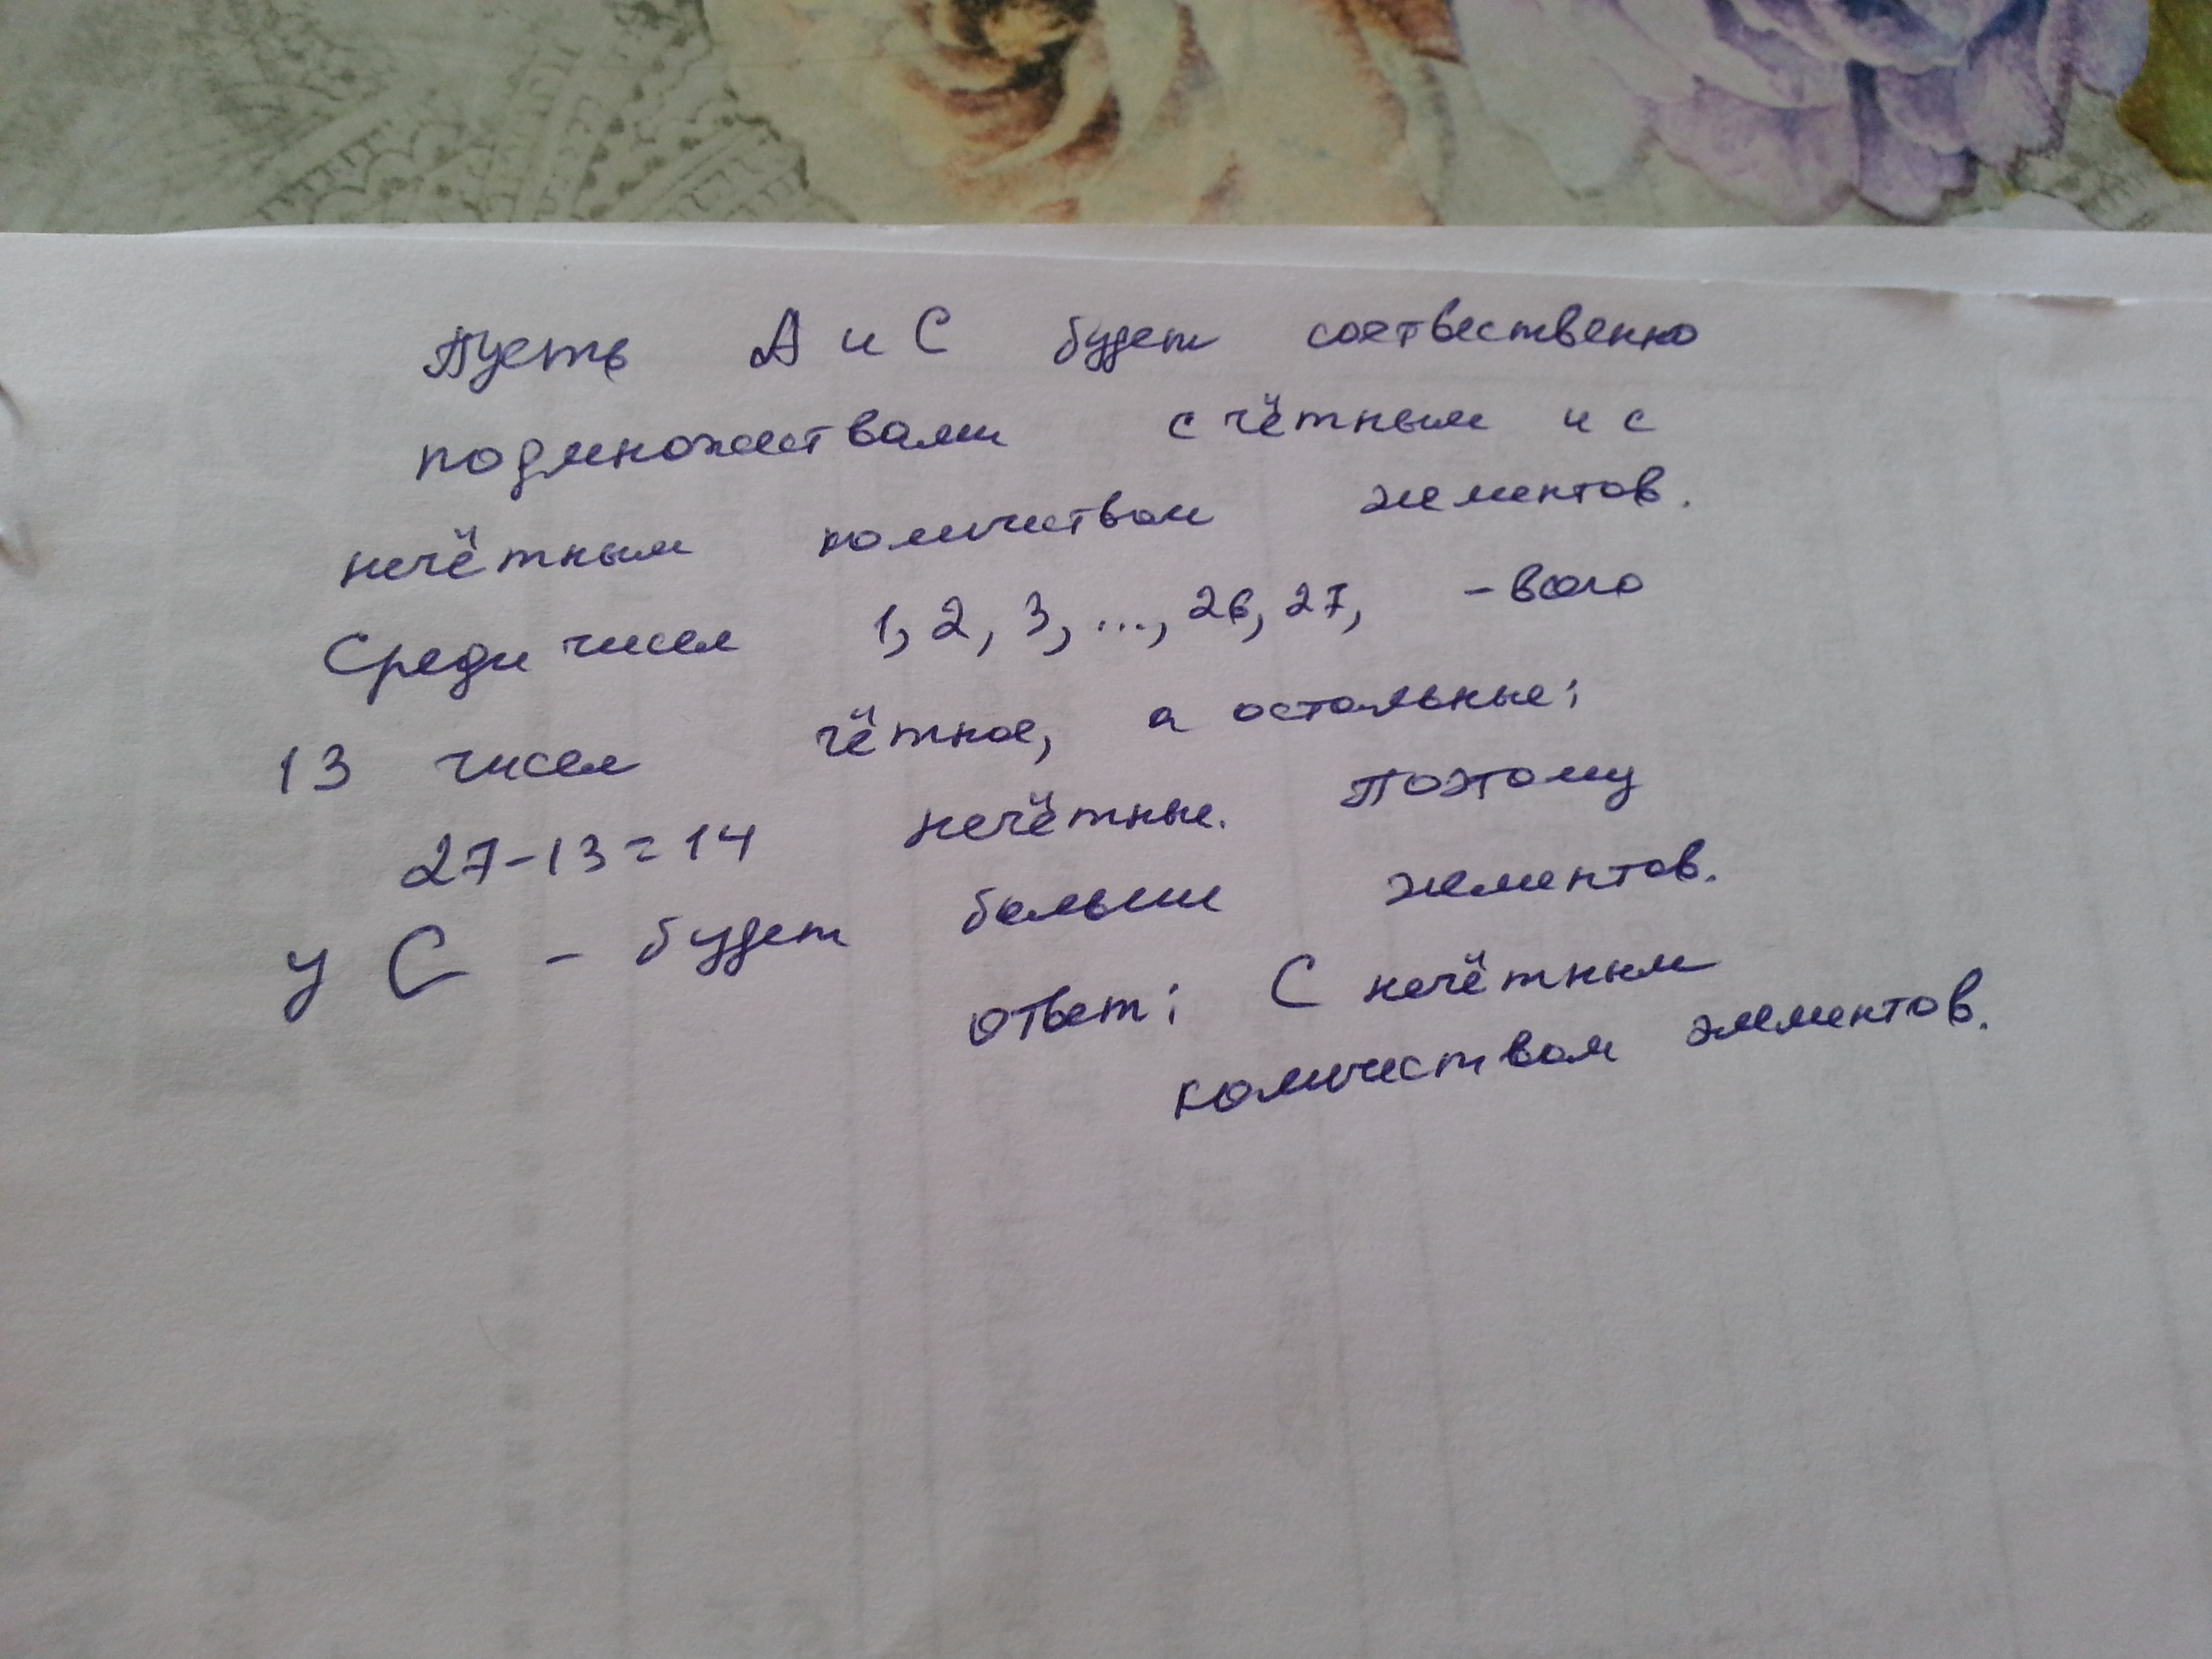 Пусть А и С будет соответственно
подмножествами с чётным и с
нечётным количеством элементов.
Среди чисел 1, 2, 3, ..., 26, 27, - всего
13 чисел чётное, а остальные:
27-13=14 нечётные. Поэтому
у С - будет больше элементов.
ответ: С нечётным
количеством элементов.